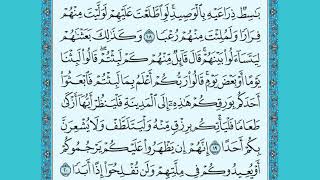 بَاسِطٌ ذِرَاعَيْهِ بِالْوَصِيدِ ۚ لَوِ اطَّلَعْتَ عَلَيْهِمْ لَوَلَّيْتَ مِنْهُمْ
فِرَارًا وَلَمُلِئْتَ مِنْهُمْ رُعْبًا ١٨ وَكَذَٰلِكَ بَعَثْنَاهُمْ
لِيَتَسَاءَلُوا بَيْنَهُمْ ۚ قَالَ قَائِلٌ مِنْهُمْ كَمْ لَبِثْتُمْ ۖ قَالُوا لَبِثْنَا
يَوْمًا أَوْ بَعْضَ يَوْمٍ ۚ قَالُوا رَبُّكُمْ أَعْلَمُ بِمَا لَبِثْتُمْ فَابْعَثُوا
أَحَدَكُمْ بِوَرِقِكُمْ هَٰذِهِ إِلَى الْمَدِينَةِ فَلْيَنْظُرْ أَيُّهَا أَزْكَىٰ
طَعَامًا فَلْيَأْتِكُمْ بِرِزْقٍ مِنْهُ وَلْيَتَلَطَّفْ وَلَا يُشْعِرَنَّ
بِكُمْ أَحَدًا ١٩ إِنَّهُمْ إِنْ يَظْهَرُوا عَلَيْكُمْ يَرْجُمُوكُمْ
أَوْ يُعِيدُوكُمْ فِي مِلَّتِهِمْ وَلَنْ تُفْلِحُوا إِذًا أَبَدًا ٢٠